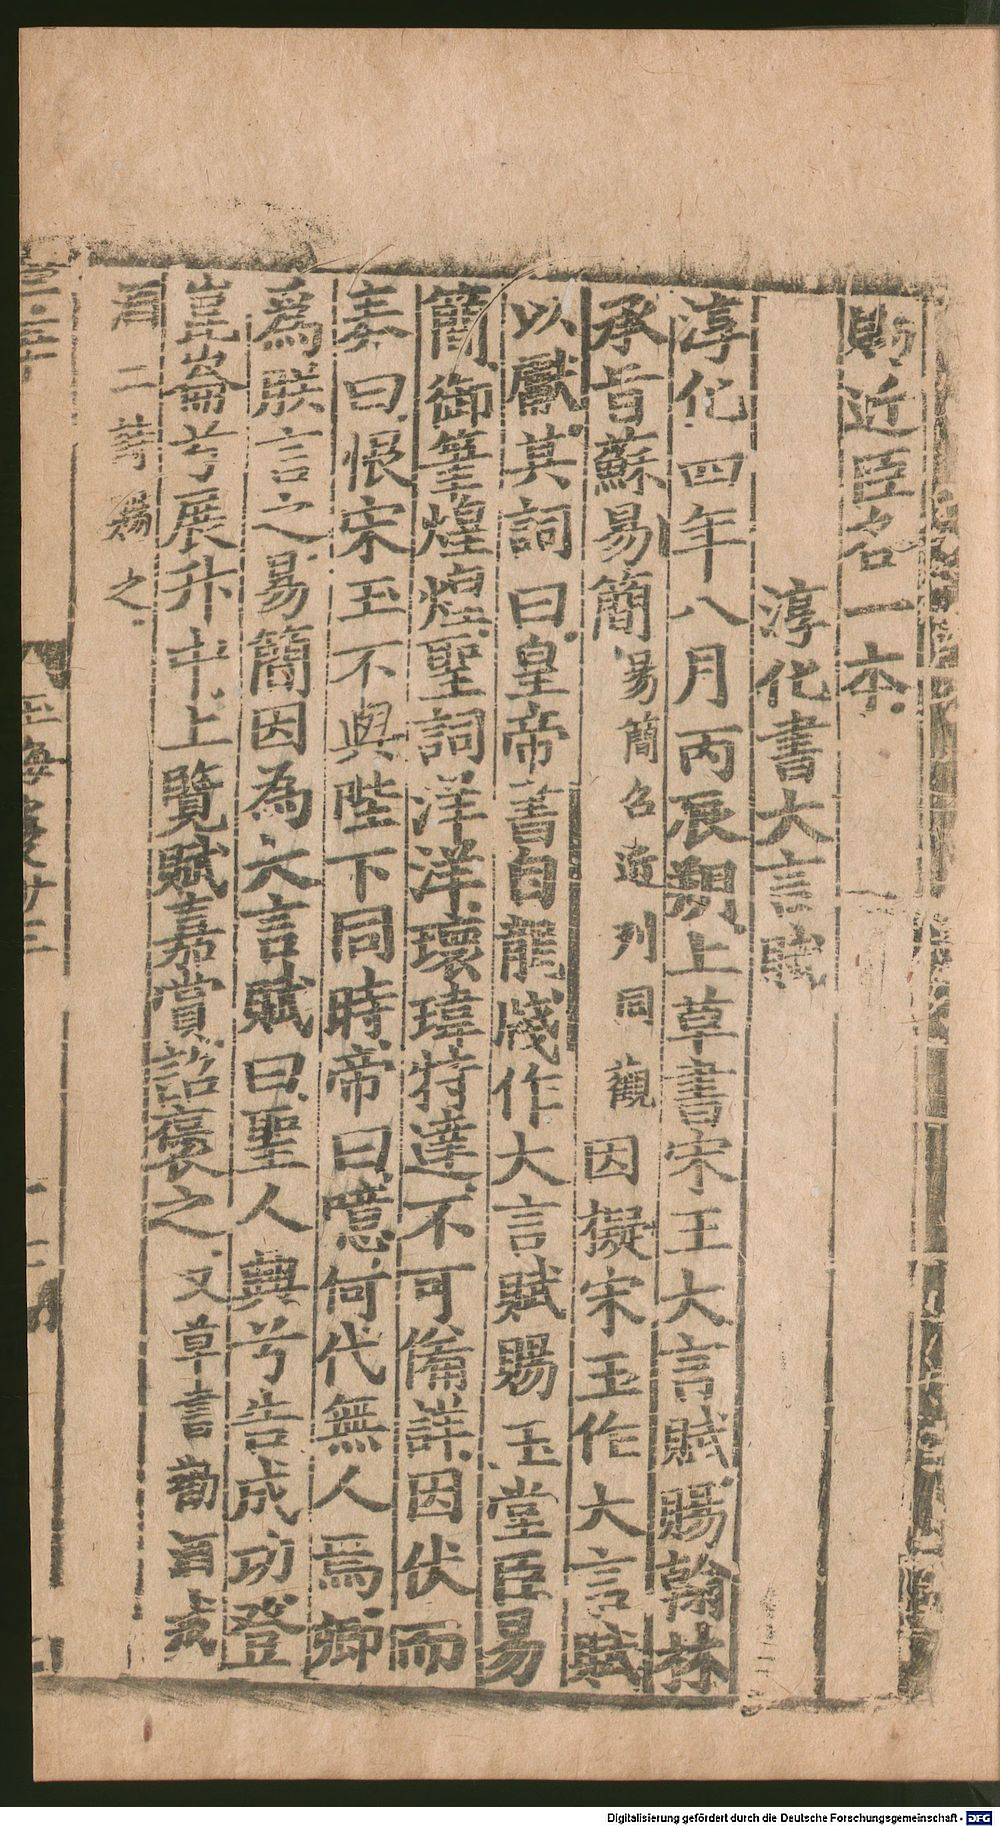 賜近臣各一本
淳化書大言賦
淳化四年八月丙辰朔上草書宋玉大言賦賜翰林
承旨蘇易簡易簡召近列同觀因擬宋玉作大言賦
以獻其詞曰皇帝書白龍牋作大言賦賜玉堂臣易
簡御筆煌煌聖詞洋洋瓌瑋特達不可備詳因伏而
奏曰恨宋玉不與陛下同時帝曰噫何代無人焉卿
為朕言之易簡因為大言賦曰聖人興兮告成功登
崑崙兮展升中上覽賦嘉賞詔褒之又草書勸酒
二詩賜之
玉海卷廿三
Digitalisierung gefördert durch die Deutsche Forschungsgemeinschaft - DFG